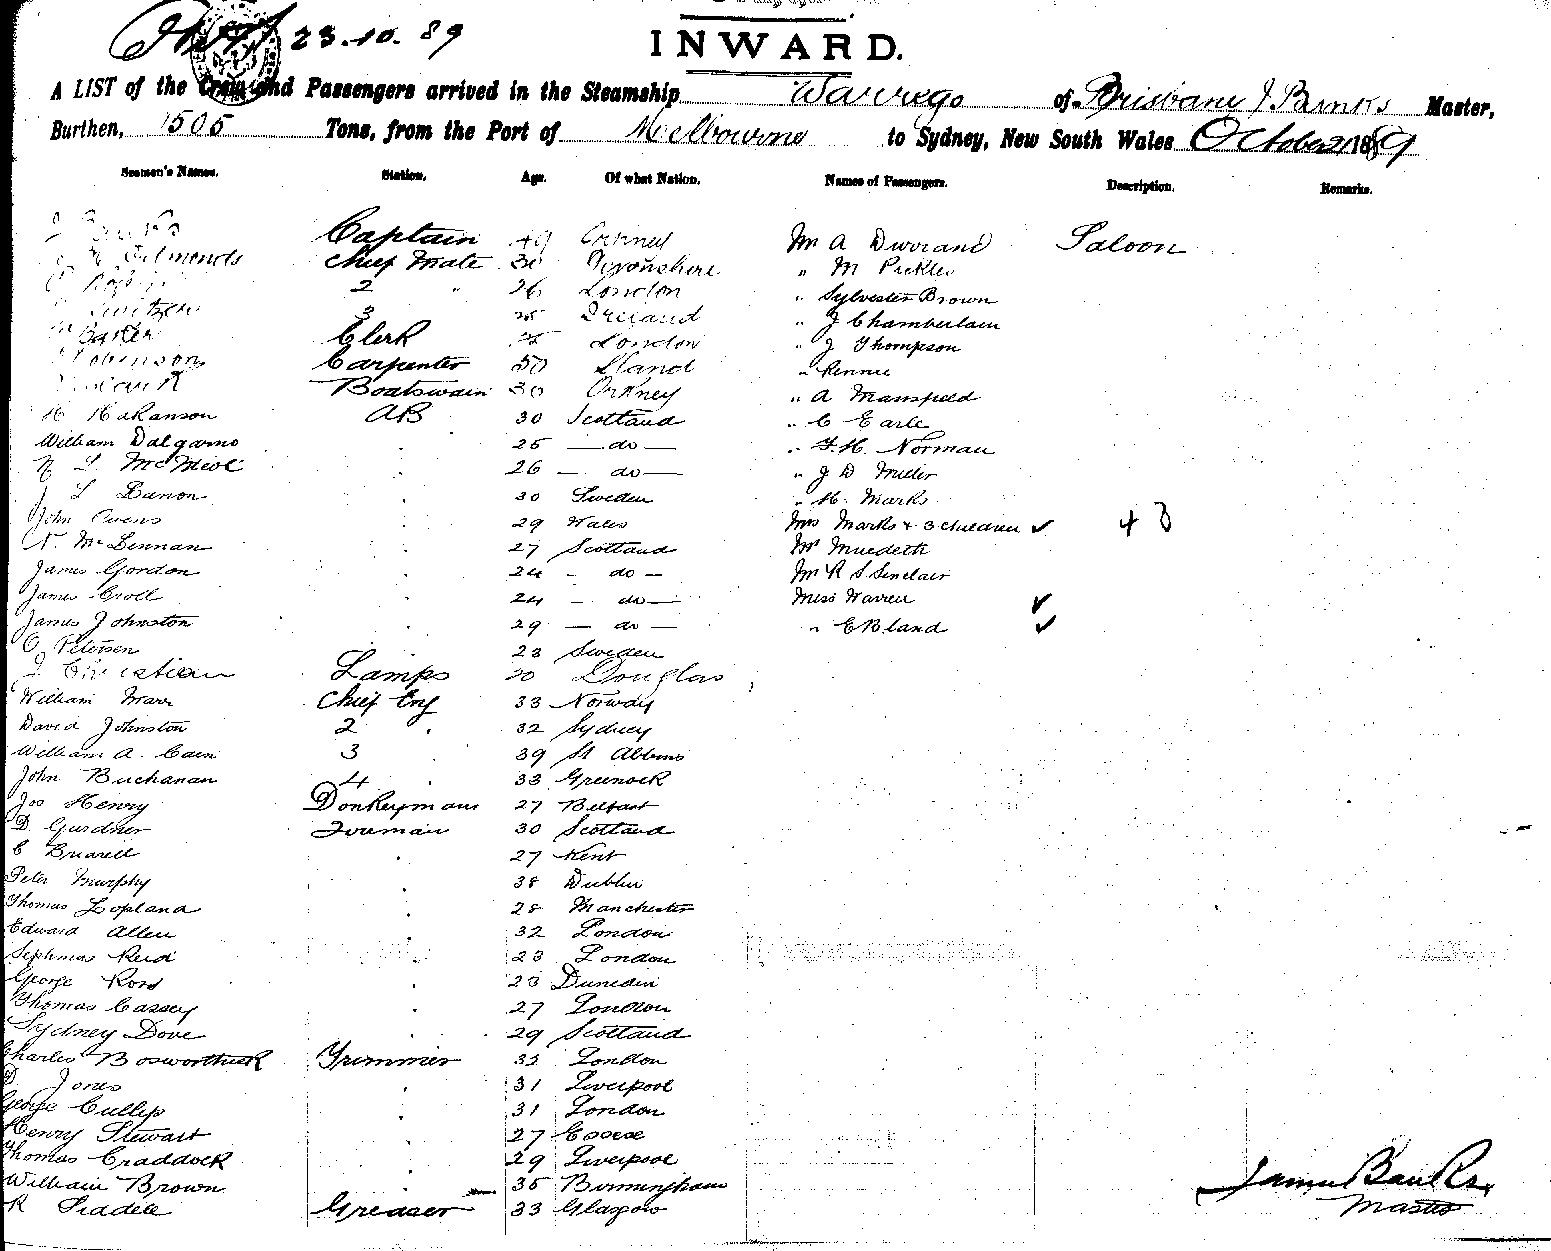 23.10.89
INWARD.
A LIST of the Crew and Passengers arrived in the Steamship Warrego of Brisbane J. Banks Master,
Burthen, 1505 Tons, from the Port of Melbourne to Sydney, New South Wales October 1889
Seamen's Names. Station. Age. Of what Nation. Names of Passengers. Description. Remarks.
Banks Captain 49 Orkney Mr A Durrand Saloon
Edmonds Chief Mate 30 Devonshire " M Pickles
2 " 26 London " Sylvester Brown
3 Ireland " J Chamberlain
Baker Clerk London " J Thompson
Robinson Carpenter 50 " Rennie
Boatswain 30 Orkney " A Mansfield
H Hakanson AB 30 Scotland " C Earle
William Dalgarno . 25 — do — " F. H. Norman
26 — do — " J D Miller
J L . 30 Sweden " H. Marks
John Owens . 29 Wales Mrs Marks + 3 children ✓ 4 3
N. McLennan . 27 Scotland Mr
James Gordon . 24 - do - Mr R S Sinclair
James Croll . 24 - do - Miss Warren ✓
James Johnston . 29 - do - " E Bland ✓
O Petersen 23 Sweden
Christian Lamps 20 Douglas
William Marr Chief Eng 33 Norway
David Johnston 2 . 32 Sydney
William A. Cain 3 39 St Abbins
John Buchanan 4 . 33 Greenock
Jos Henry Donkeyman 27 Belfast
D. Gardner Foreman 30 Scotland
C . 27 Kent
Peter Murphy . 38 Dublin
Thomas Lopland . 28 Manchester
Edward Allen . 32 London
Sephmas Reid . 23 London
George Ross . 23 Dunedin
Thomas Cassey . 27 London
Sydney Dove . 29 Scotland
Charles Bosworthick Trimmer 32 London
D Jones . 31 Liverpool
George Cullip . 31 London
Henry Stewart . 27 Essex
Thomas Craddock . 29 Liverpool
William Brown . 35 Birmingham
R Greaser 33 Glasgow
James Banks.
Master